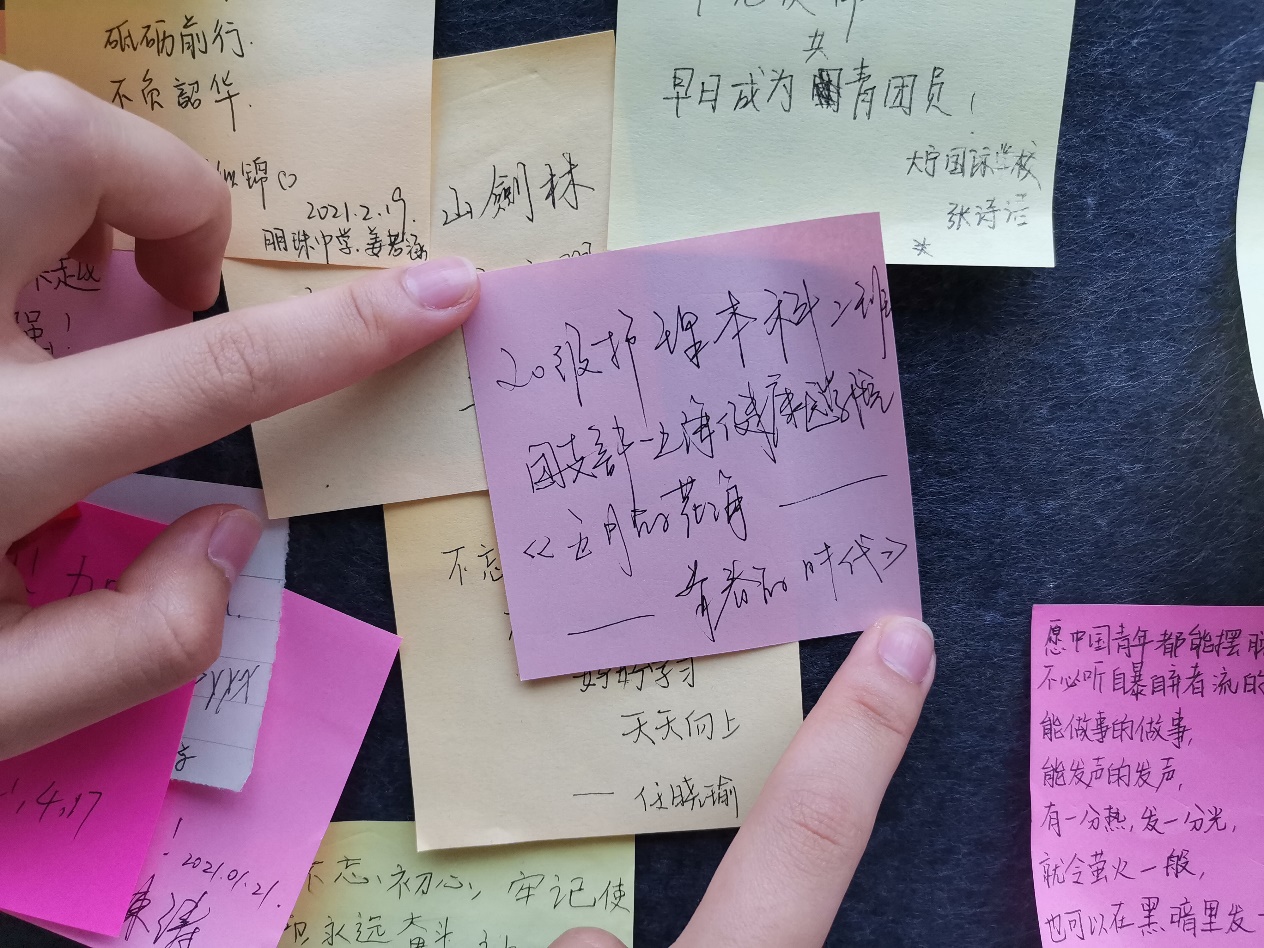 砥砺前行.
不负韶华.
锦
2021.2.19.
明珠中学.姜若涵
山剑林
共
早日成为青团员!
大宁国际学校
张诗洁
越
强!
20级护理本科二班
团支部—上海健康医学院
《五月的花海——
——青春的时代》
不忘
好好学习
天天向上
— 任晓瑜
4,17
2021.01.21.
不忘初心,牢记使
永远奋斗
愿中国青年都能摆脱
不必听自暴自弃者流的
能做事的做事,
能发声的发声,
有一分热,发一分光,
就令萤火一般,
也可以在黑暗里发一